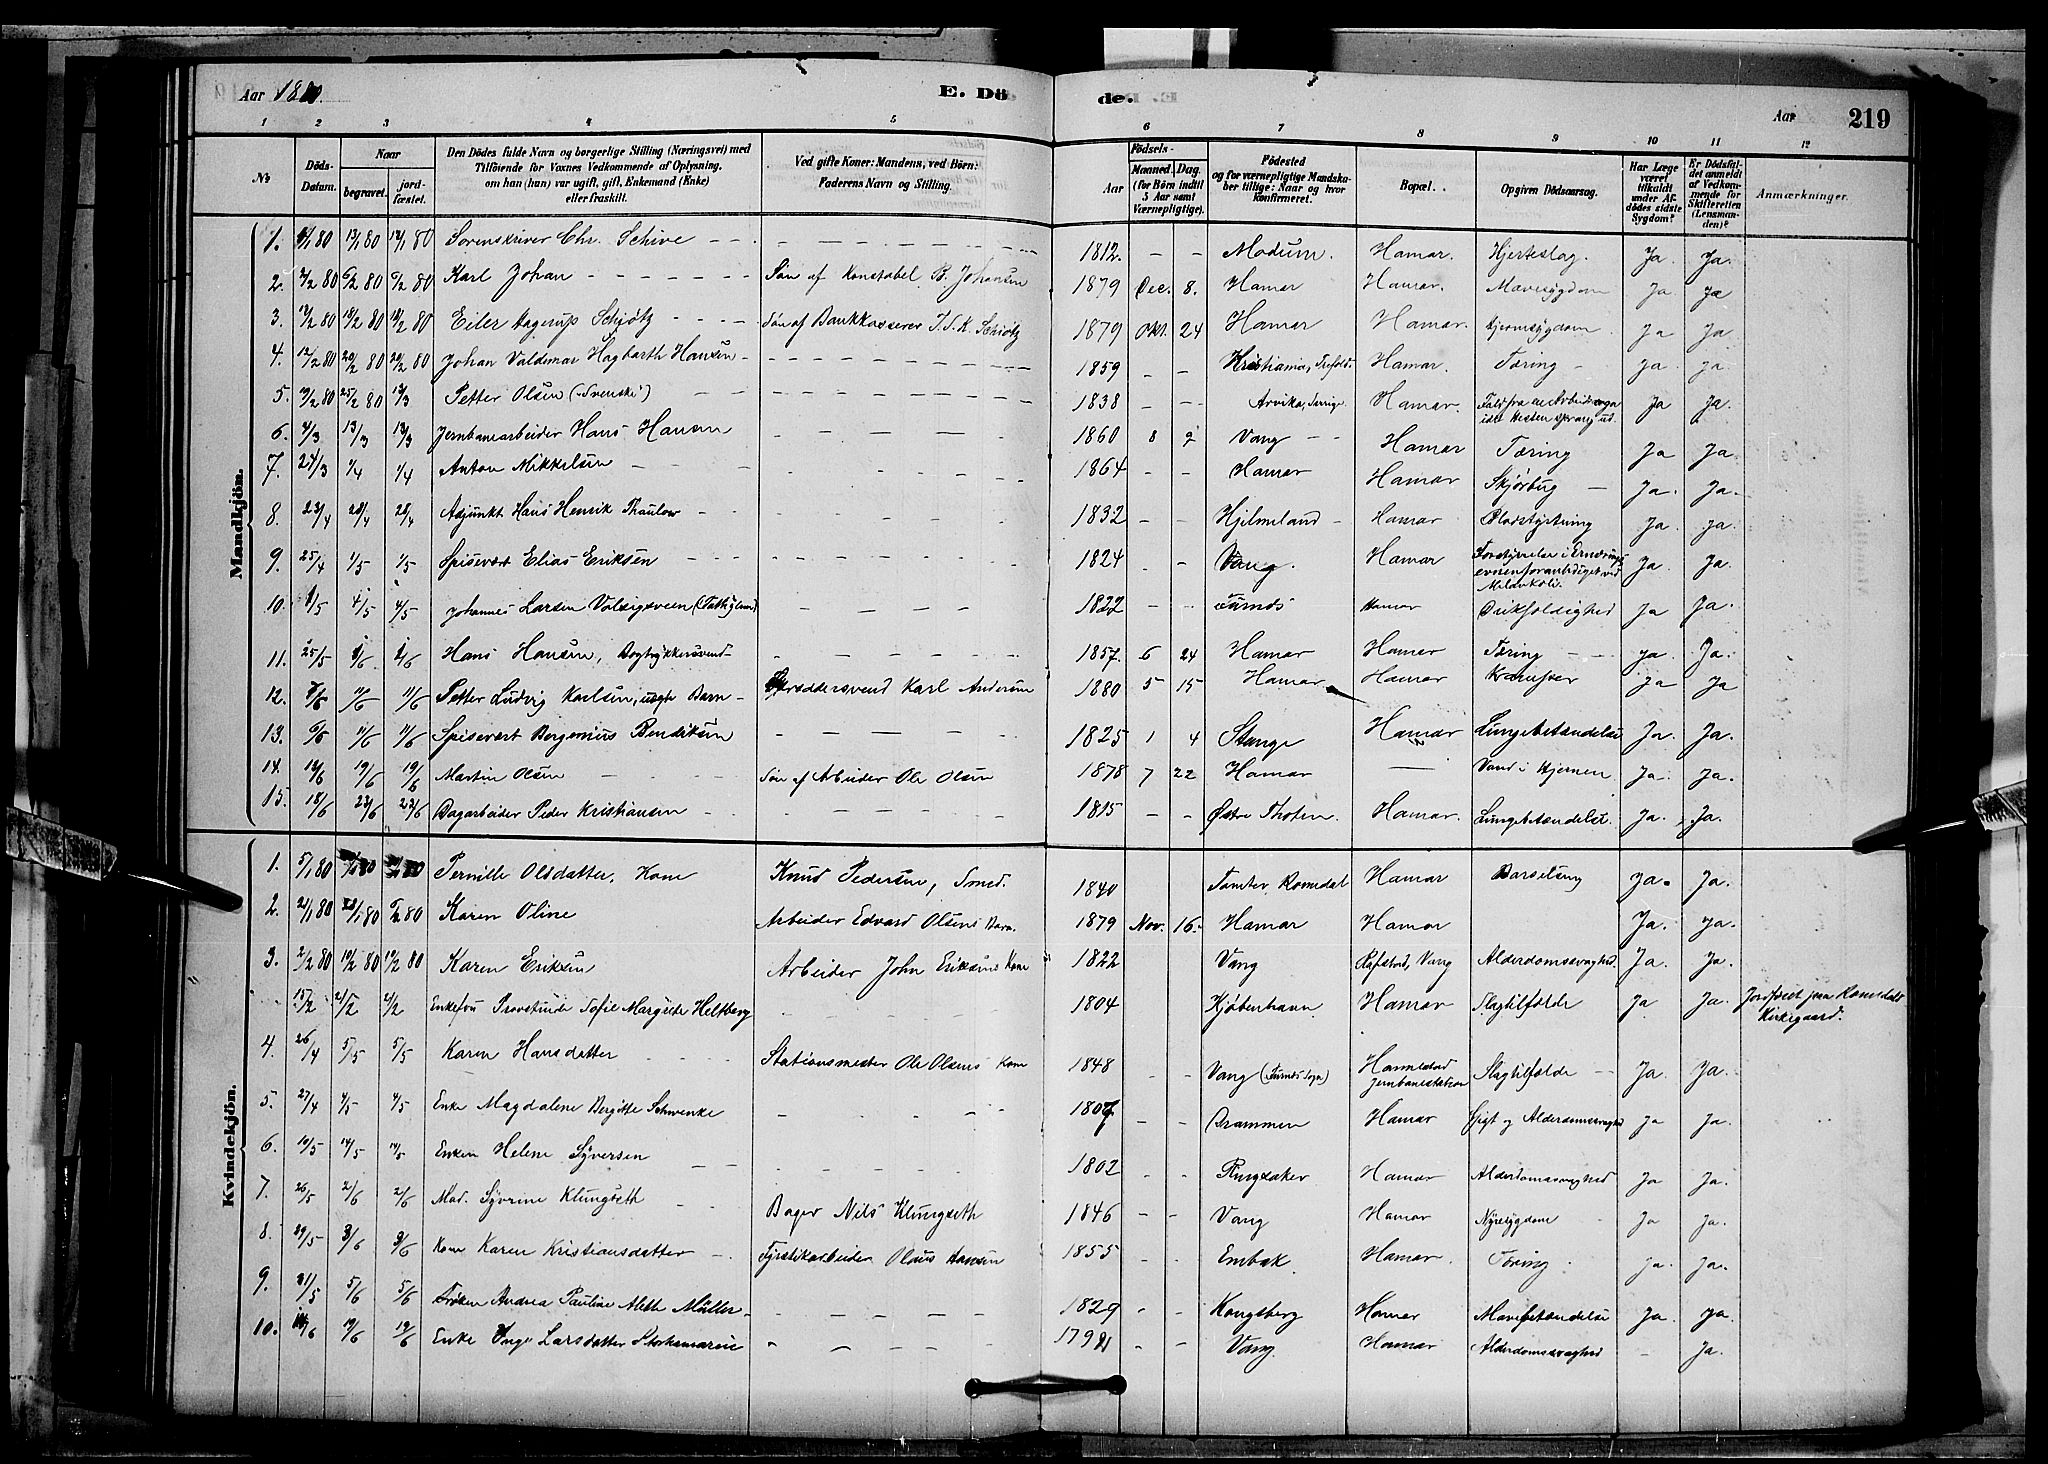 Aar 1880. E. Döde. Aar 219
1 2 3 4 5 6 7 8 9 10 11 12
No Döds-Datum. Naar begravet. jordfæstet. Den Dödes fulde Navn og borgerlige Stilling (Næringsvei) med Tilföiende for Voxnes Vedkommende af Oplysning, om han (hun) var ugift, gift, Enkemand (Enke) eller fraskilt. Ved gifte Koner: Mandens, ved Börn: Faderens Navn og Stilling. Födsels- Aar Maaned. Dag. (for Börn indtil 5 Aar samt Værnepligtige). Födested og for værnepligtige Mandskaber tillige: Naar og hvor konfirmeret. Bopæl. Opgiven Dödsaarsag. Har Læge været tilkaldt under Afdödes sidste Sygdom? Er Dödsfaldet anmeldt af Vedkommende for Skifteretten (Lensmanden)? Anmærkninger.
Mandkjön.
1. 13/1 80 Sorenskriver Chr. Schive 1812. Modum. Hamar. Hjerteslag. Ja. Ja.
2. 2/2 80 6/2 80 6/2 80 Karl Johan Søn af Konstabel B. Johansen 1879 Dec. 8. Hamar Hamar. Mavesygdom Ja Ja
3. 18/2 80 18/2 80 Eiler Hagerup Schjøtz Søn af Bankkasserer J. S. K. Schiøtz 1879 Okt. 24 Hamar Hamar. Hjernesygdom. Ja Ja.
4. 12/2 80 20/2 80 20/2 80 Johan Valdemar Hagbarth Hansen 1859 Kristiania, Trefold. Hamar. Tæring Ja Ja
5. 19/2 80 25/2 80 13/3 Petter Olsen (Svenske) 1838 Arvika, Sverige. Hamar. Fald fra en Arbeidsvogn idet Hesten sprang ud. Ja Ja.
6. 4/3 13/3 13/3 Jernbanearbeider Hans Hansen 1860 8 2 Vang Hamar Tæring Ja Ja.
7. 24/3 1/4 1/4 Anton Mikkelsen 1864 Hamar Hamar Skjørbug Ja. Ja.
8. 23/4 28/4 28/4 Adjunkt Hans Henrik Thaulow 1832 Hjelmeland Hamar Blodstyrtning Ja Ja.
9. 25/4 1/5 1/5 Spisevært Elias Eriksen 1824 Vang. Hamar Forstyrrelse i Ernæringsevnen foranlediget ved Melankoli. Ja. Ja.
10. 1/5 4/5 4/5 Johannes Larsen Volsigsveen 1822 Furnæs Hamar Drikfældighed Ja Ja.
11. 25/5 1/6 1/6 Hans Hansen, Bogtrykkersvend 1857. 6 24 Hamar Hamar Tæring Ja. Ja.
12. 11/6 11/6 Petter Ludvig Karlsen, uægte Barn Skræddersvend Karl Andersen 1880 5 15 Hamar Hamar Kramper Ja Ja
13. 6/6 11/6 11/6 Spisevært Bergenius Bendiksen 1825 1 4 Stange Hamar Lungebetændelse Ja. Ja.
14. 13/6 19/6 19/6 Martin Olsen Søn af Arbeider Ole Olsen 1878 7 22 Hamar Vand i Hjernen Ja. Ja.
15. 18/6 23/6 23/6 Dagarbeider Peder Kristiansen 1815 Østre Thoten. Hamar. Lungebetændelse. Ja. Ja.
Kvindekjön.
1. 5/1 80 Pernille Olsdatter, Kone Knud Pedersen, Smed. 1840 Tomter, Romedal Hamar Barselseng Ja. Ja.
2. 21/1 80 28/1 80 6/2 80 Karen Oline Arbeider Edvard Olsens Barn. 1879 Nov. 16. Hamar Hamar Ja. Ja.
3. 2/2 80 10/2 80 10/2 80 Karen Eriksen Arbeider John Eriksens Kone 1822 Vang Vang Alderdomssvaghed. Ja. Ja.
15/2 21/2 21/2 Enkefru Provstinde Sofie Margrethe Heltberg 1804 Kjøbenhavn Hamar Slagtilfælde Ja Ja. Jordfæstet paa Romedals Kirkegaard.
4. 26/4 5/5 5/5 Karen Hansdatter Stationsmester Ole Olsens Kone 1848 Vang (Furnes Sogn) Hammerstad Jernbanestation Slagtilfælde Ja. Ja.
5. 27/4 4/5 4/5 Enke Magdalene Bergitte Schwenke 1807 Drammen Hamar Gigt og Alderdomssvaghed Ja Ja.
6. 10/5 14/5 14/5 Enken Helene Syversen 1802 Ringsaker Hamar Alderdomssvaghed Ja Ja.
7. 26/5 2/6 2/6 Mad. Syverine Klungseth Bager Nils Klungseth 1846 Vang Hamar Nyresygdom Ja Ja.
8. 29/5 3/6 3/6 Kone Karen Kristiansdatter Fyrstikarbeider Olaus Hansen 1855 Enebak Hamar. Tæring Ja. Ja.
9. 31/5 5/6 5/6 Frøken Andrea Pauline Aleth Müller 1829 Kongsberg Hamar Mavebetændelse Ja. Ja.
10. 19/6 19/6 Enke Inge Larsdatter Stokkemarie 1791 Vang. Hamar Alderdomssvaghed Ja.